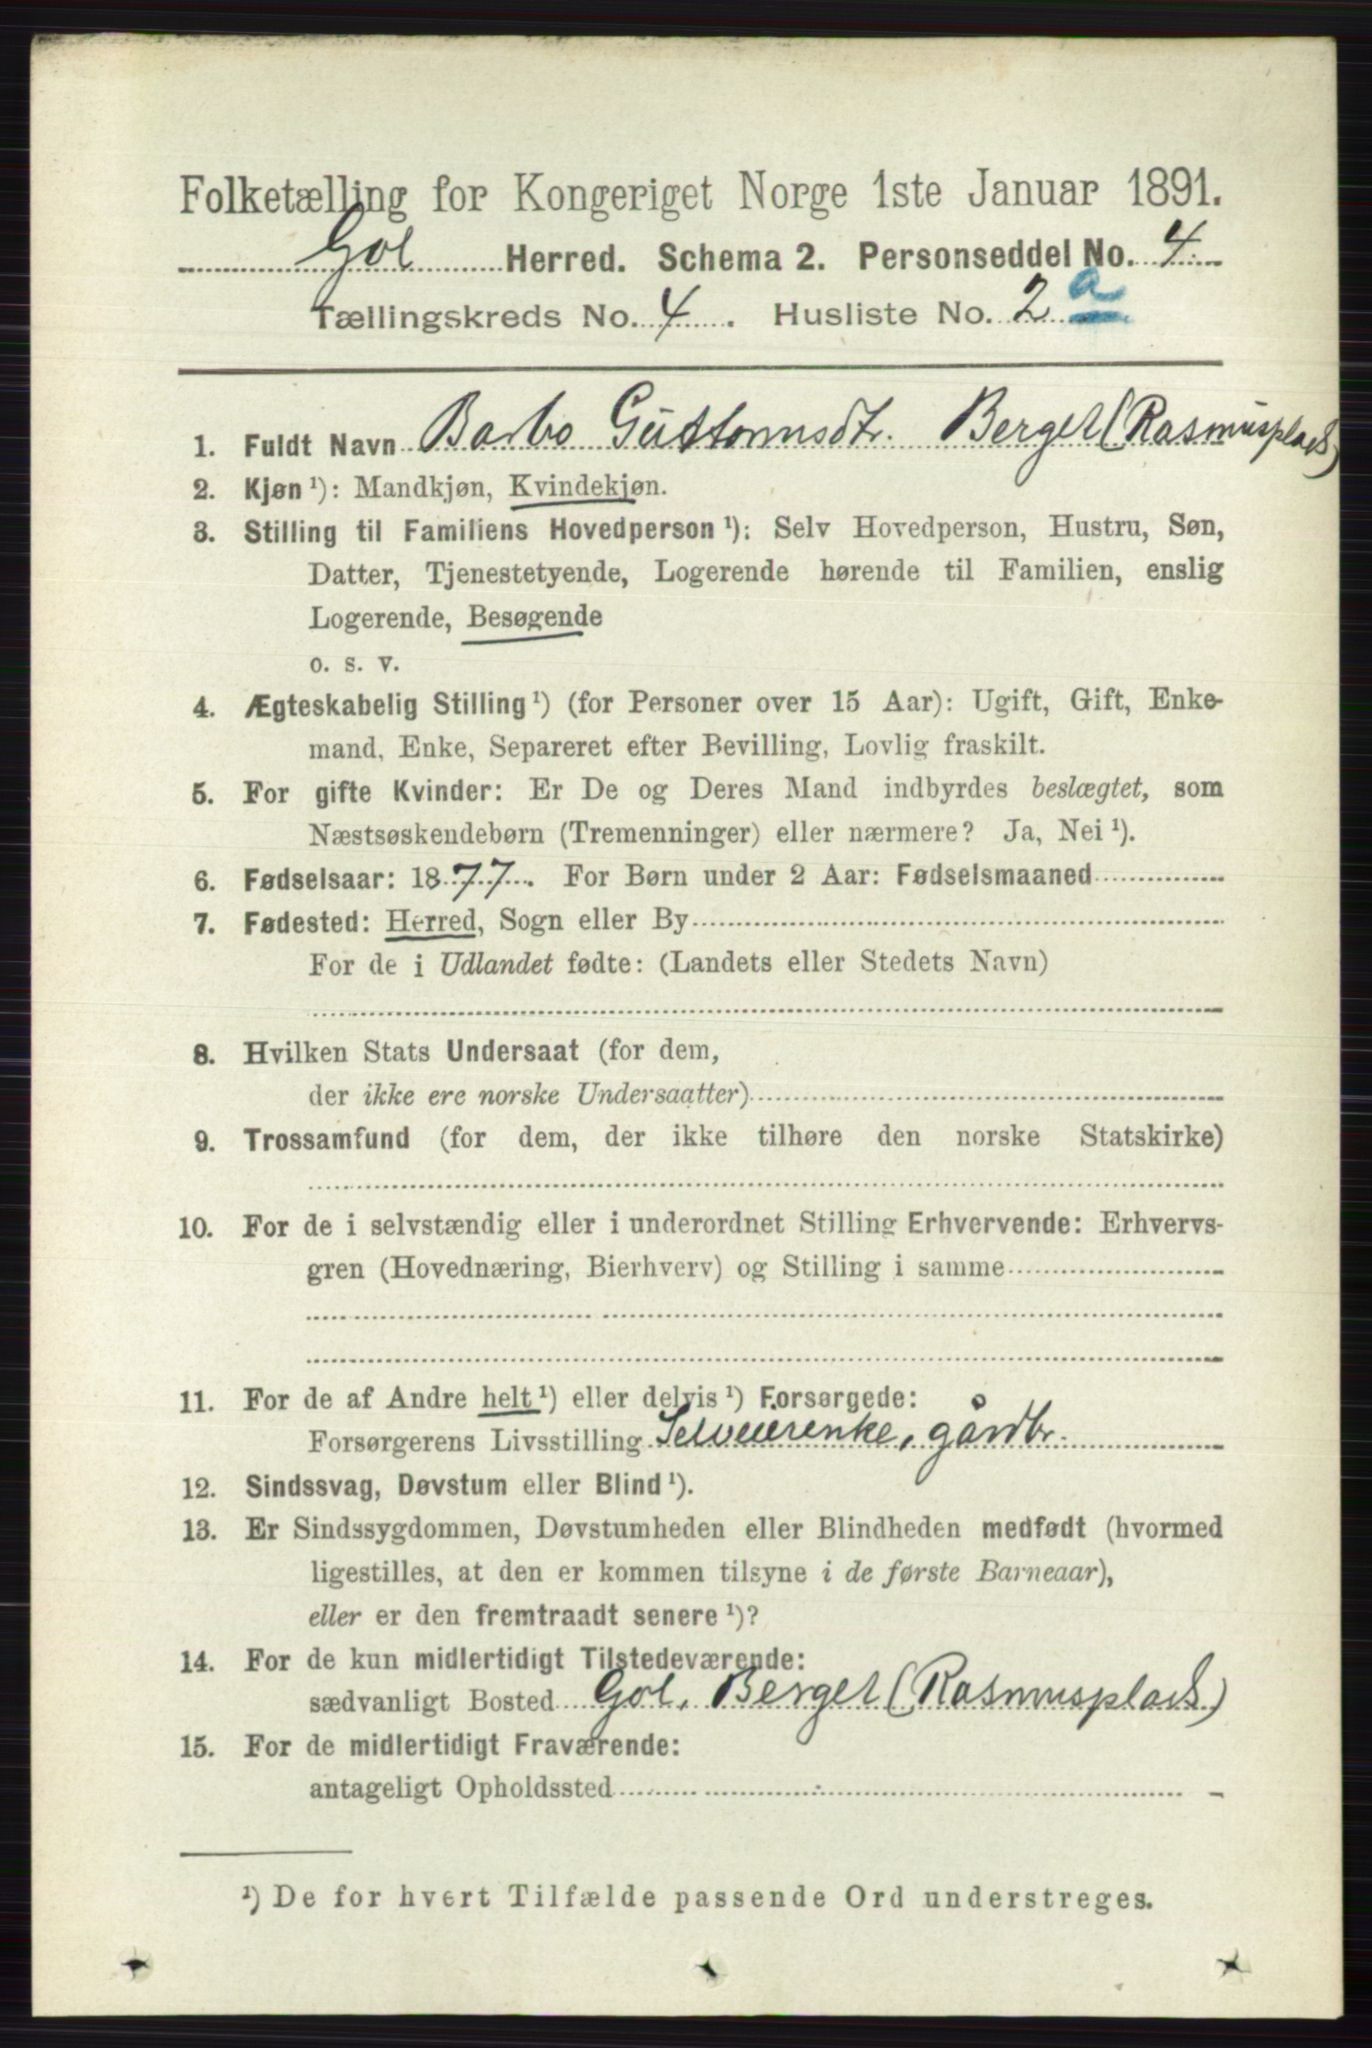 Folketælling for Kongeriget Norge 1ste Januar 1891.
Gol Herred. Schema 2. Personseddel No. 4
Tællingskreds No. 4. Husliste No. 2 a
1. Fuldt Navn Barbo Guttormsdtr. Berget (Rasmusplads)
2. Kjøn ¹): Mandkjøn, Kvindekjøn.
3. Stilling til Familiens Hovedperson ¹): Selv Hovedperson, Hustru, Søn,
Datter, Tjenestetyende, Logerende hørende til Familien, enslig
Logerende, Besøgende
o. s. v.
4. Ægteskabelig Stilling ¹) (for Personer over 15 Aar): Ugift, Gift, Enke-
mand, Enke, Separeret efter Bevilling, Lovlig fraskilt.
5. For gifte Kvinder: Er De og Deres Mand indbyrdes beslægtet, som
Næstsøskendebørn (Tremenninger) eller nærmere? Ja, Nei ¹).
6. Fødselsaar: 1877. For Børn under 2 Aar: Fødselsmaaned
7. Fødested: Herred, Sogn eller By
For de i Udlandet fødte: (Landets eller Stedets Navn)
8. Hvilken Stats Undersaat (for dem,
der ikke ere norske Undersaatter)
9. Trossamfund (for dem, der ikke tilhøre den norske Statskirke)
10. For de i selvstændig eller i underordnet Stilling Erhvervende: Erhvervs-
gren (Hovednæring, Bierhverv) og Stilling i samme
11. For de af Andre helt ¹) eller delvis ¹) Forsørgede:
Forsørgerens Livsstilling Selveierenke, gårdbr.
12. Sindssvag, Døvstum eller Blind ¹).
13. Er Sindssygdommen, Døvstumheden eller Blindheden medfødt (hvormed
ligestilles, at den er kommen tilsyne i de første Barneaar),
eller er den fremtraadt senere ¹)?
14. For de kun midlertidigt Tilstedeværende:
sædvanligt Bosted Gol, Berget (Rasmusplads)
15. For de midlertidigt Fraværende:
antageligt Opholdssted
¹) De for hvert Tilfælde passende Ord understreges.